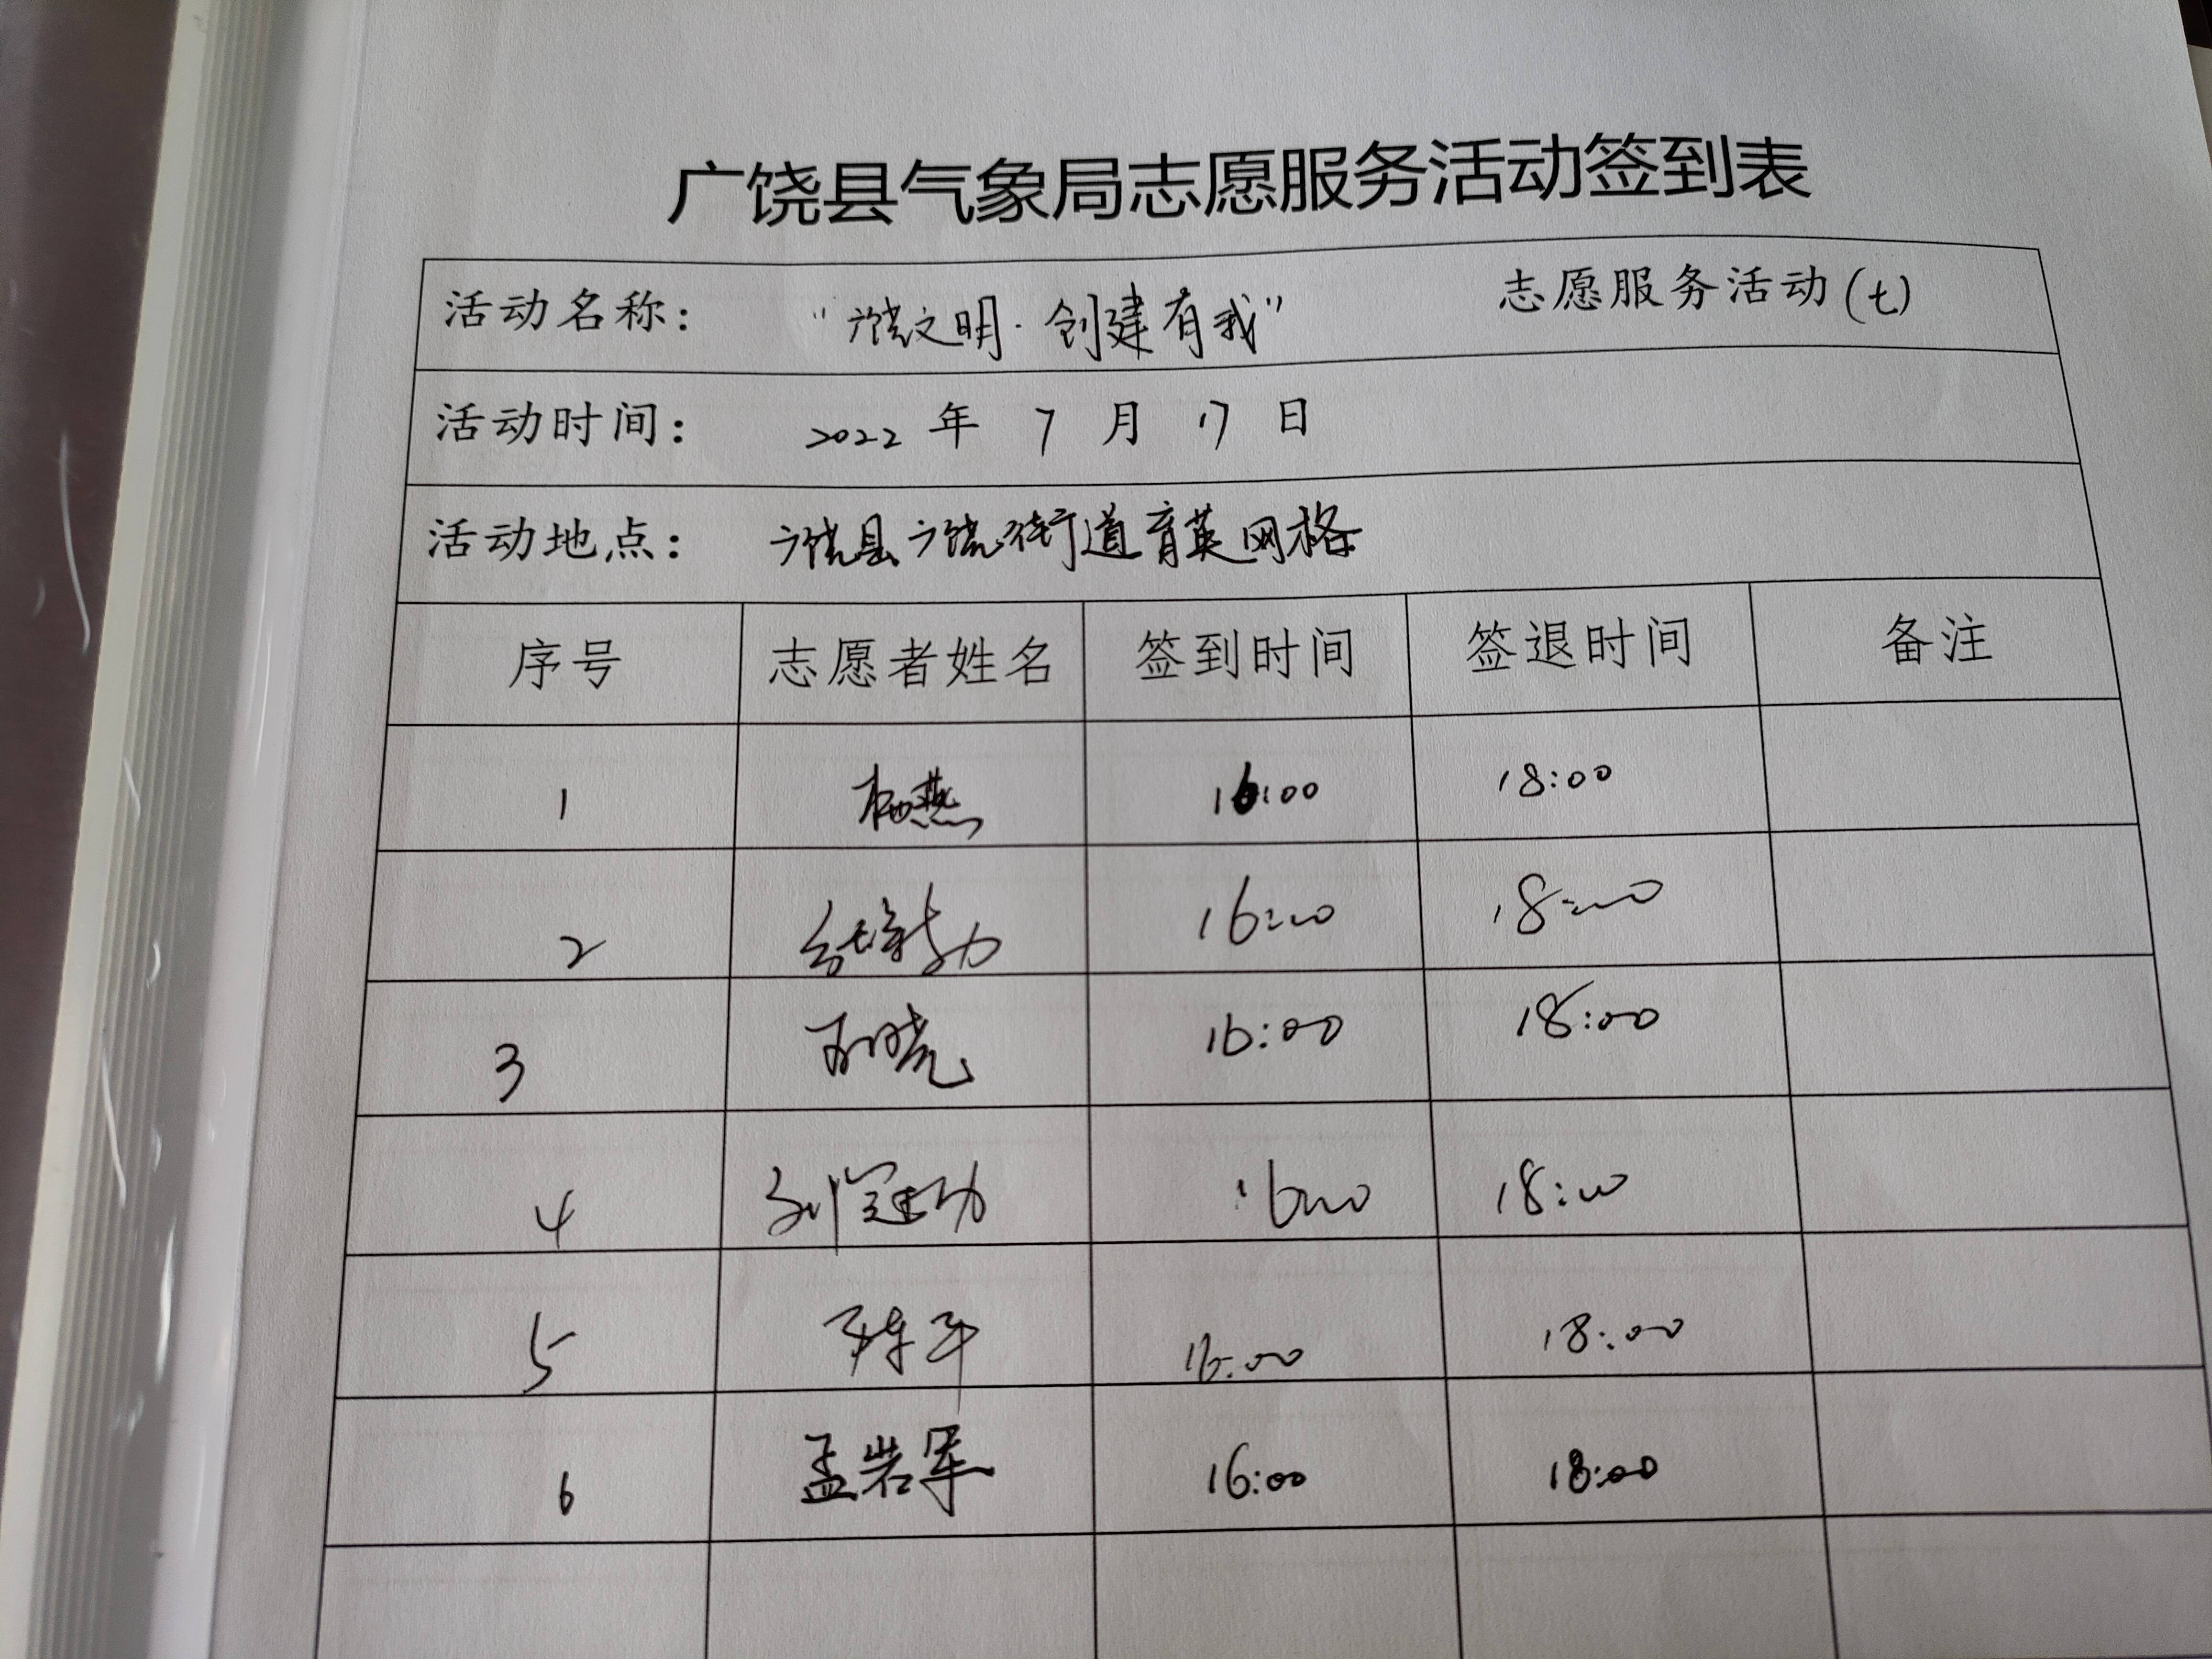 广饶县气象局志愿服务活动签到表
活动名称： “广饶文明·创建有我” 志愿服务活动(七)
活动时间： 2022 年 7 月 17 日
活动地点： 广饶县广饶街道育英网格
序号 志愿者姓名 签到时间 签退时间 备注
1 燕 16:00 18:00
2 16:00 18:00
3 晓 16:00 18:00
4 刘冠功 16:00 18:00
5 16:00 18:00
6 孟岩军 16:00 18:00